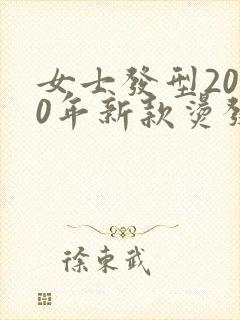 女士發型20
0年新款燙發
徐東武